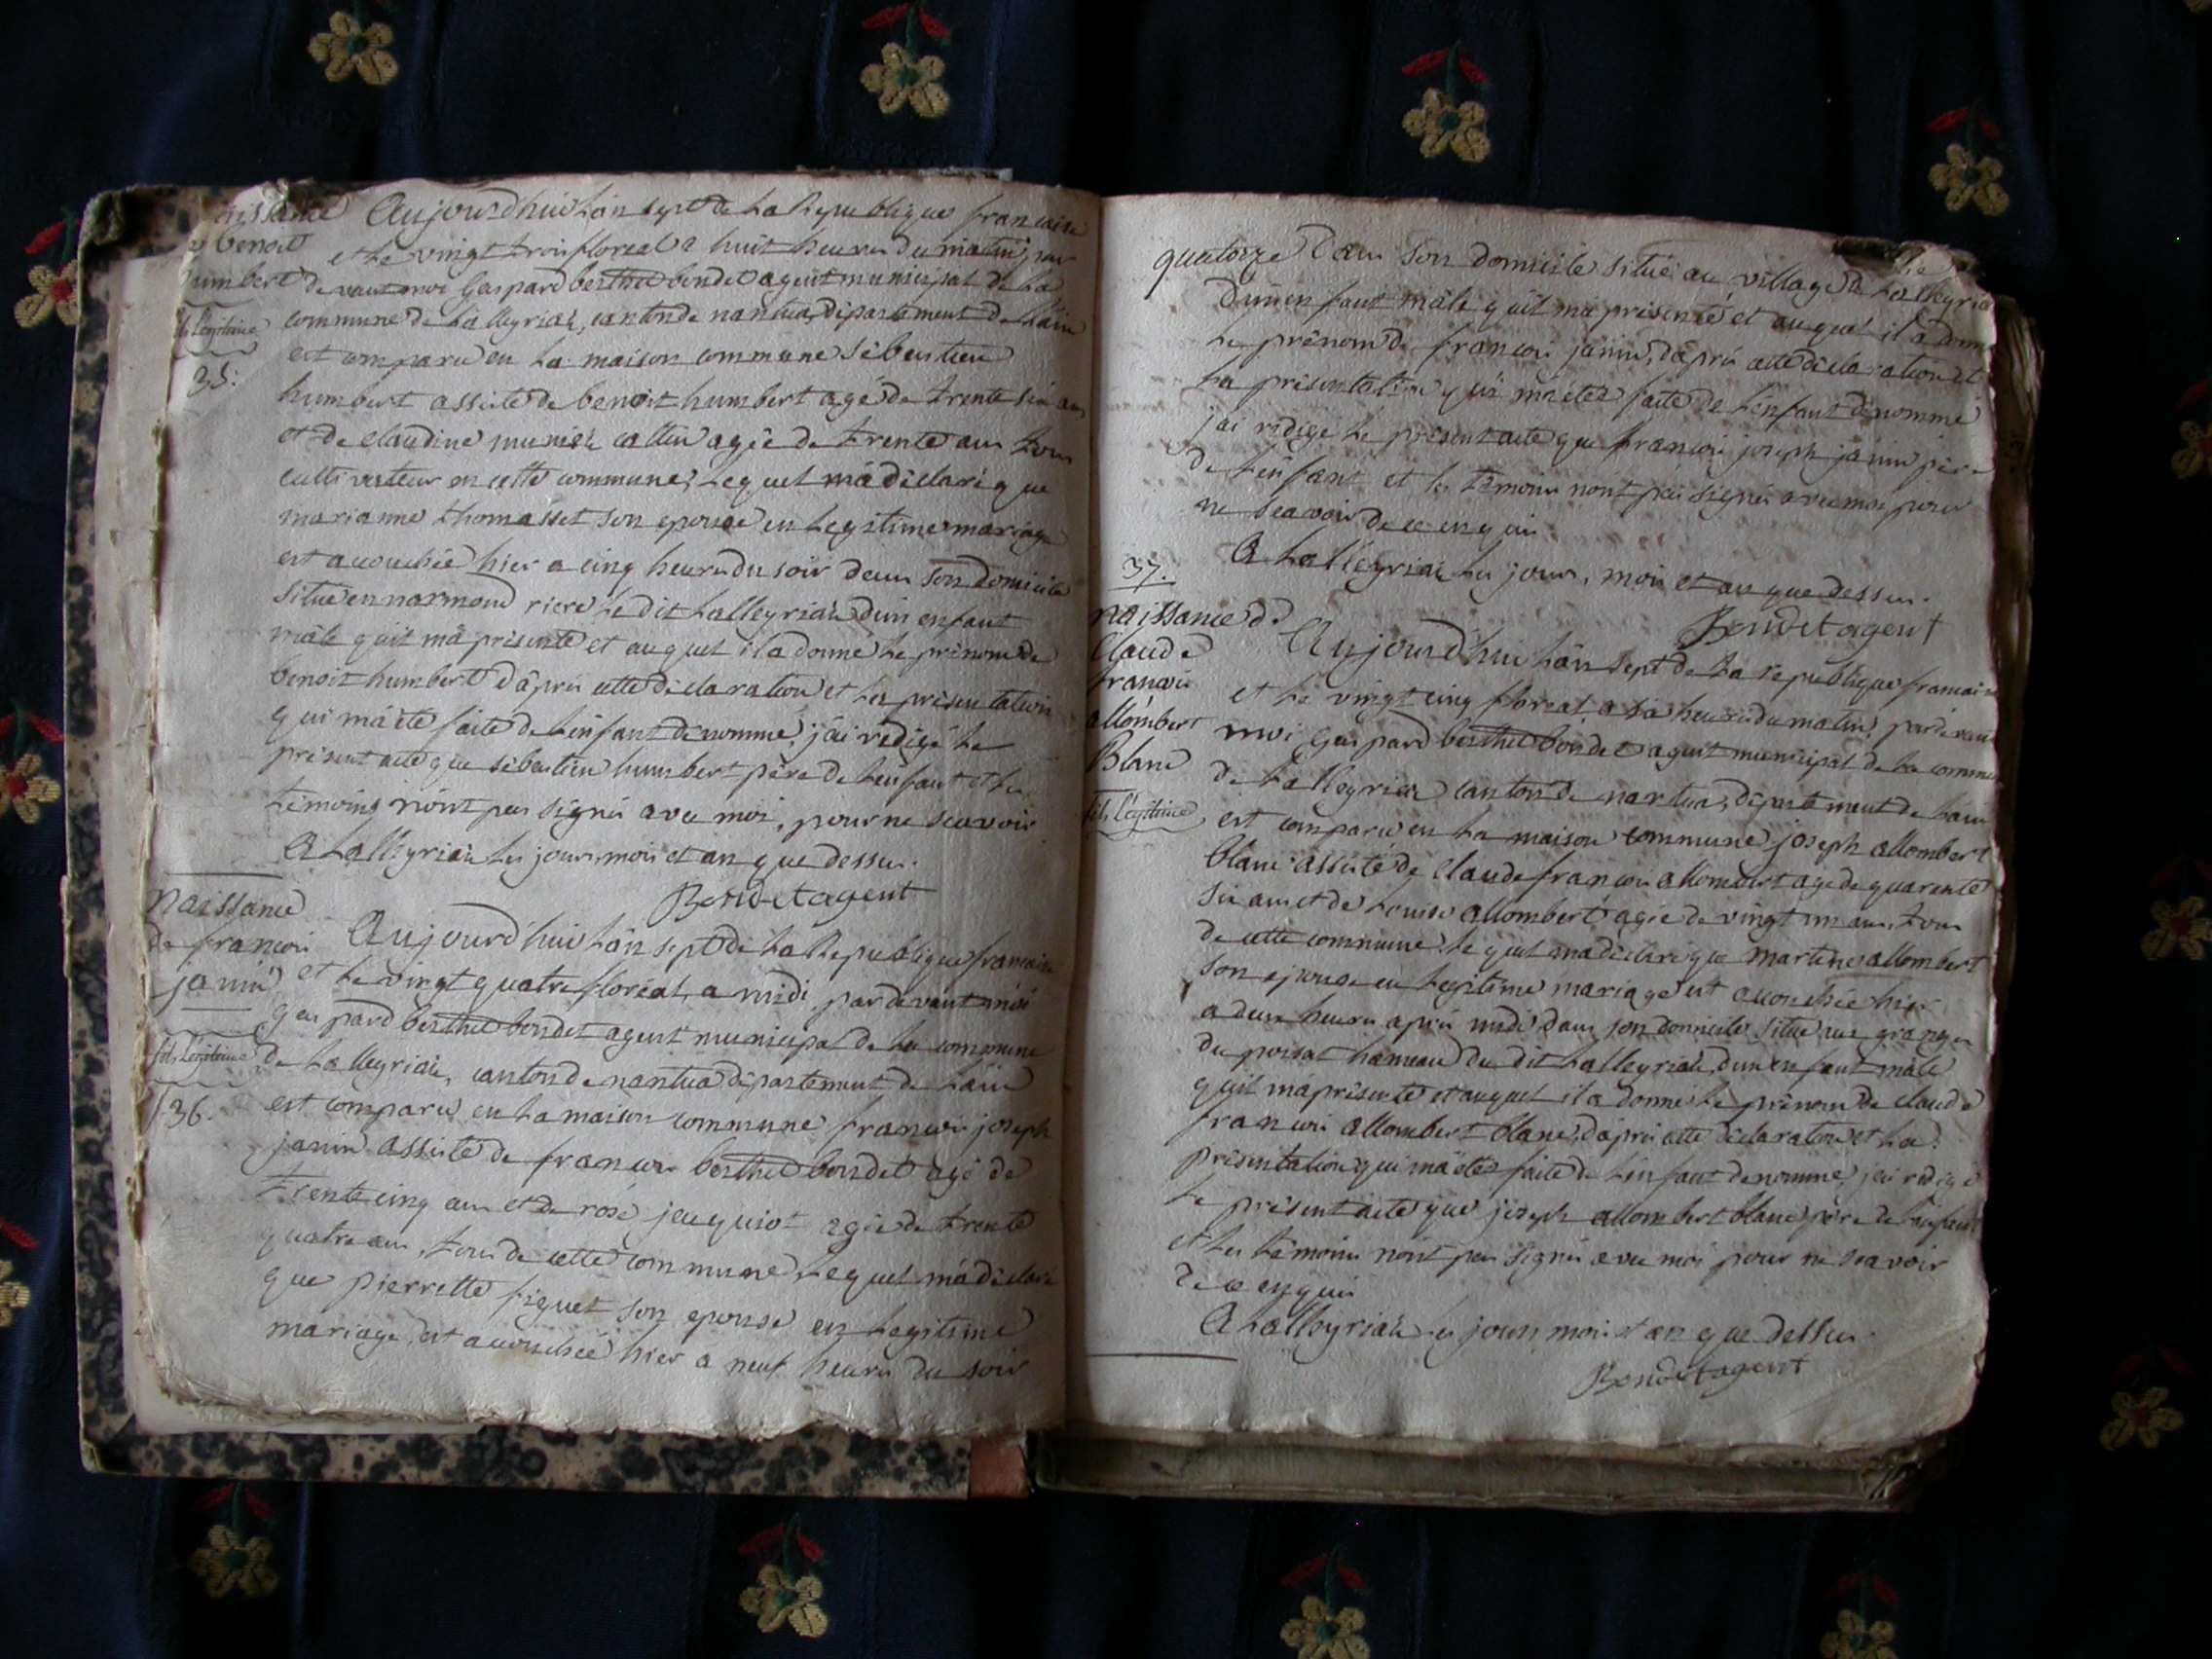 naissance
benoit
humbert
fils légitime
35.
Aujourdhui L'an sept de La Republique francaise
et Le vingt trois floreal a huit heures du matin, par
devant moi Gaspard berthet bondet agent municipal de La
commune de Lalleyriat, canton de nantua, département de L'ain
est comparu en La maison commune sébastien
humbert assisté de benoit humbert agé de trente six ans
et de claudine agée de trente ans tous
cultivateur en cette commune, Lequel m'a déclaré que
marianne thomasset son epouse en Legitime mariage
est accouchée hier a cinq heures du soir dans son domicile
situé en normand riere Le dit Lalleyriat d'un enfant
mâle qu'il m'a présenté et auquel il a donné Le prénom de
benoit humbert d'après cette déclaration et La présentation
qui m'a été faite de L'enfant dénommé, j'ai rédigé Le
présent acte que sébastien humbert père de L'enfant et Les
témoins n'ont pas signés avec moi, pour ne scavoir
A Lalleyriat Les jour, mois et an que dessus.
Bondet agent
naissance
de francois
janin
fils légitime
36.
Aujourd'hui L'an sept de La Republique francaise
et Le vingt quatre floréal, a midi, par devant moi
gaspard berthet bondet agent municipal de La commune
de Lalleyriat, canton de nantua département de L'ain
est comparu en La maison commune francois joseph
janin assisté de francois berthet bondet agé de
trente cinq ans et de rose jacquiot agée de trente
quatre ans, tous de cette commune Lequel m'a déclaré
que pierrette figuet son epouse en Legitime
mariage, est accouchée hier a neuf heures du soir
quatorze dans son domicile situé au village de Lalleyriat
d'un enfant mâle qu'il m'a présenté et auquel il a donné
Le prénom de francois janin, d'après cette déclaration et
La présentation qui m'a étée faite de L'enfant dénommé
j'ai rédigé Le présent acte que francois joseph janin père
de L'enfant et Les témoins n'ont pas signés avec moi pour
ne scavoir de ce enquis
A Lalleyriat Les jour, mois et an que dessus.
Bondet agent
37.
naissance de
Claude
francois
allombert
Blanc
fils légitime
Aujourd'hui L'an sept de La republique francaise
et Le vingt cinq floreal, a six heures du matin, par devant
moi gaspard berthet bondet agent municipal de La commune
de Lalleyriat canton de nantua, département de L'ain
est comparu en La maison commune joseph allombert
blanc assisté de Claude francois allombert agé de quarente
six ans et de Louise allombert agée de vingt un ans, tous
de cette commune Lequel m'a déclaré que martine allombert
son epouse en Legitime mariage est accouchée hier
a deux heures après midi dans son domicile situé aux granges
du poisat hameau du dit Lalleyriat, d'un enfant mâle
qu'il m'a présenté et auquel il a donné Le prénom de claude
francois allombert blanc, d'après cette déclaration et La
présentation qui m'a étée faite de L'enfant dénommé, j'ai rédigé
Le présent acte que joseph allombert blanc père de L'enfant
et Les témoins n'ont pas signés avec moi pour ne scavoir
de ce enquis
A Lalleyriat Les jour, mois et an que dessus.
Bondet agent